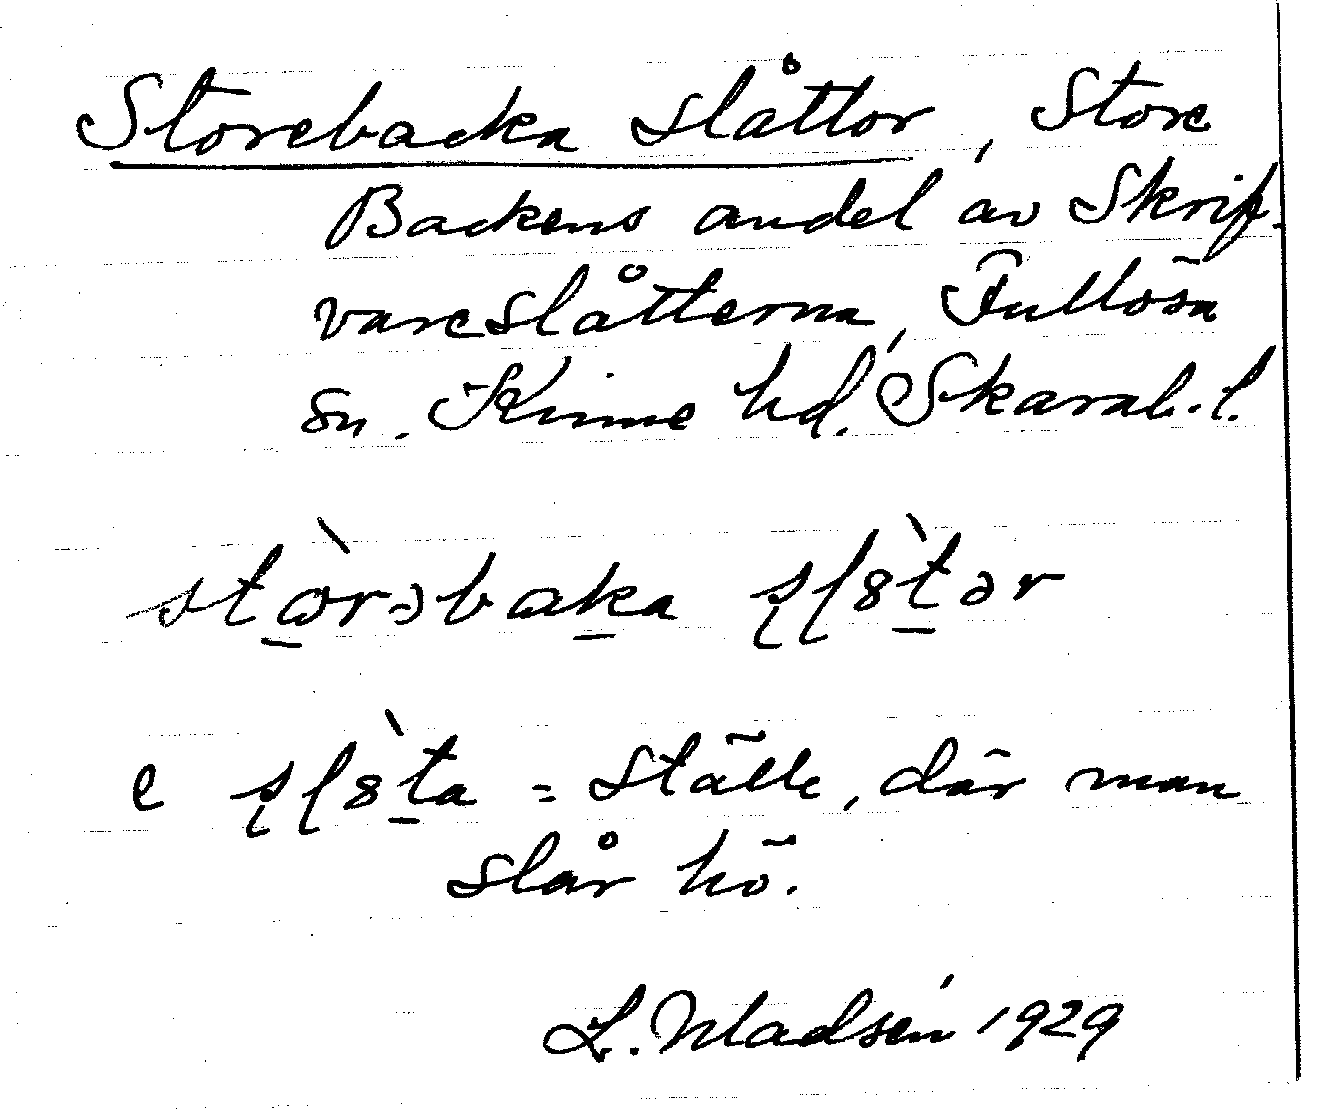 Storebacka slåttor, Store
Backens andel av Skrif-
vareslåtterna, Fullösa
sn. Kinne hd. Skarab. l.
stὼ̲rəbak̲a ʂɭ8t̲̀ər
e ʂɭ8t̲̀a = ställe, där man
slår hö.
L. Madsén 1929